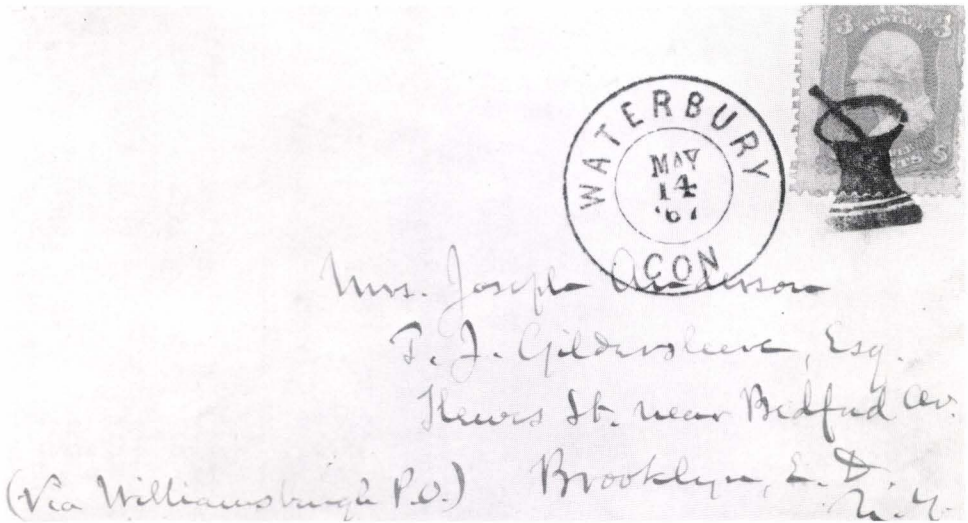 3 POSTAGE 3
WATERBURY
MAY
14
'67
CON
Mrs. Joseph Anderson
T. J. Gildersleeve, Esq.
Hewes St. near Bedford Av.
Brooklyn, E. D.
N. Y.
(Via Williamsburgh P.O.)